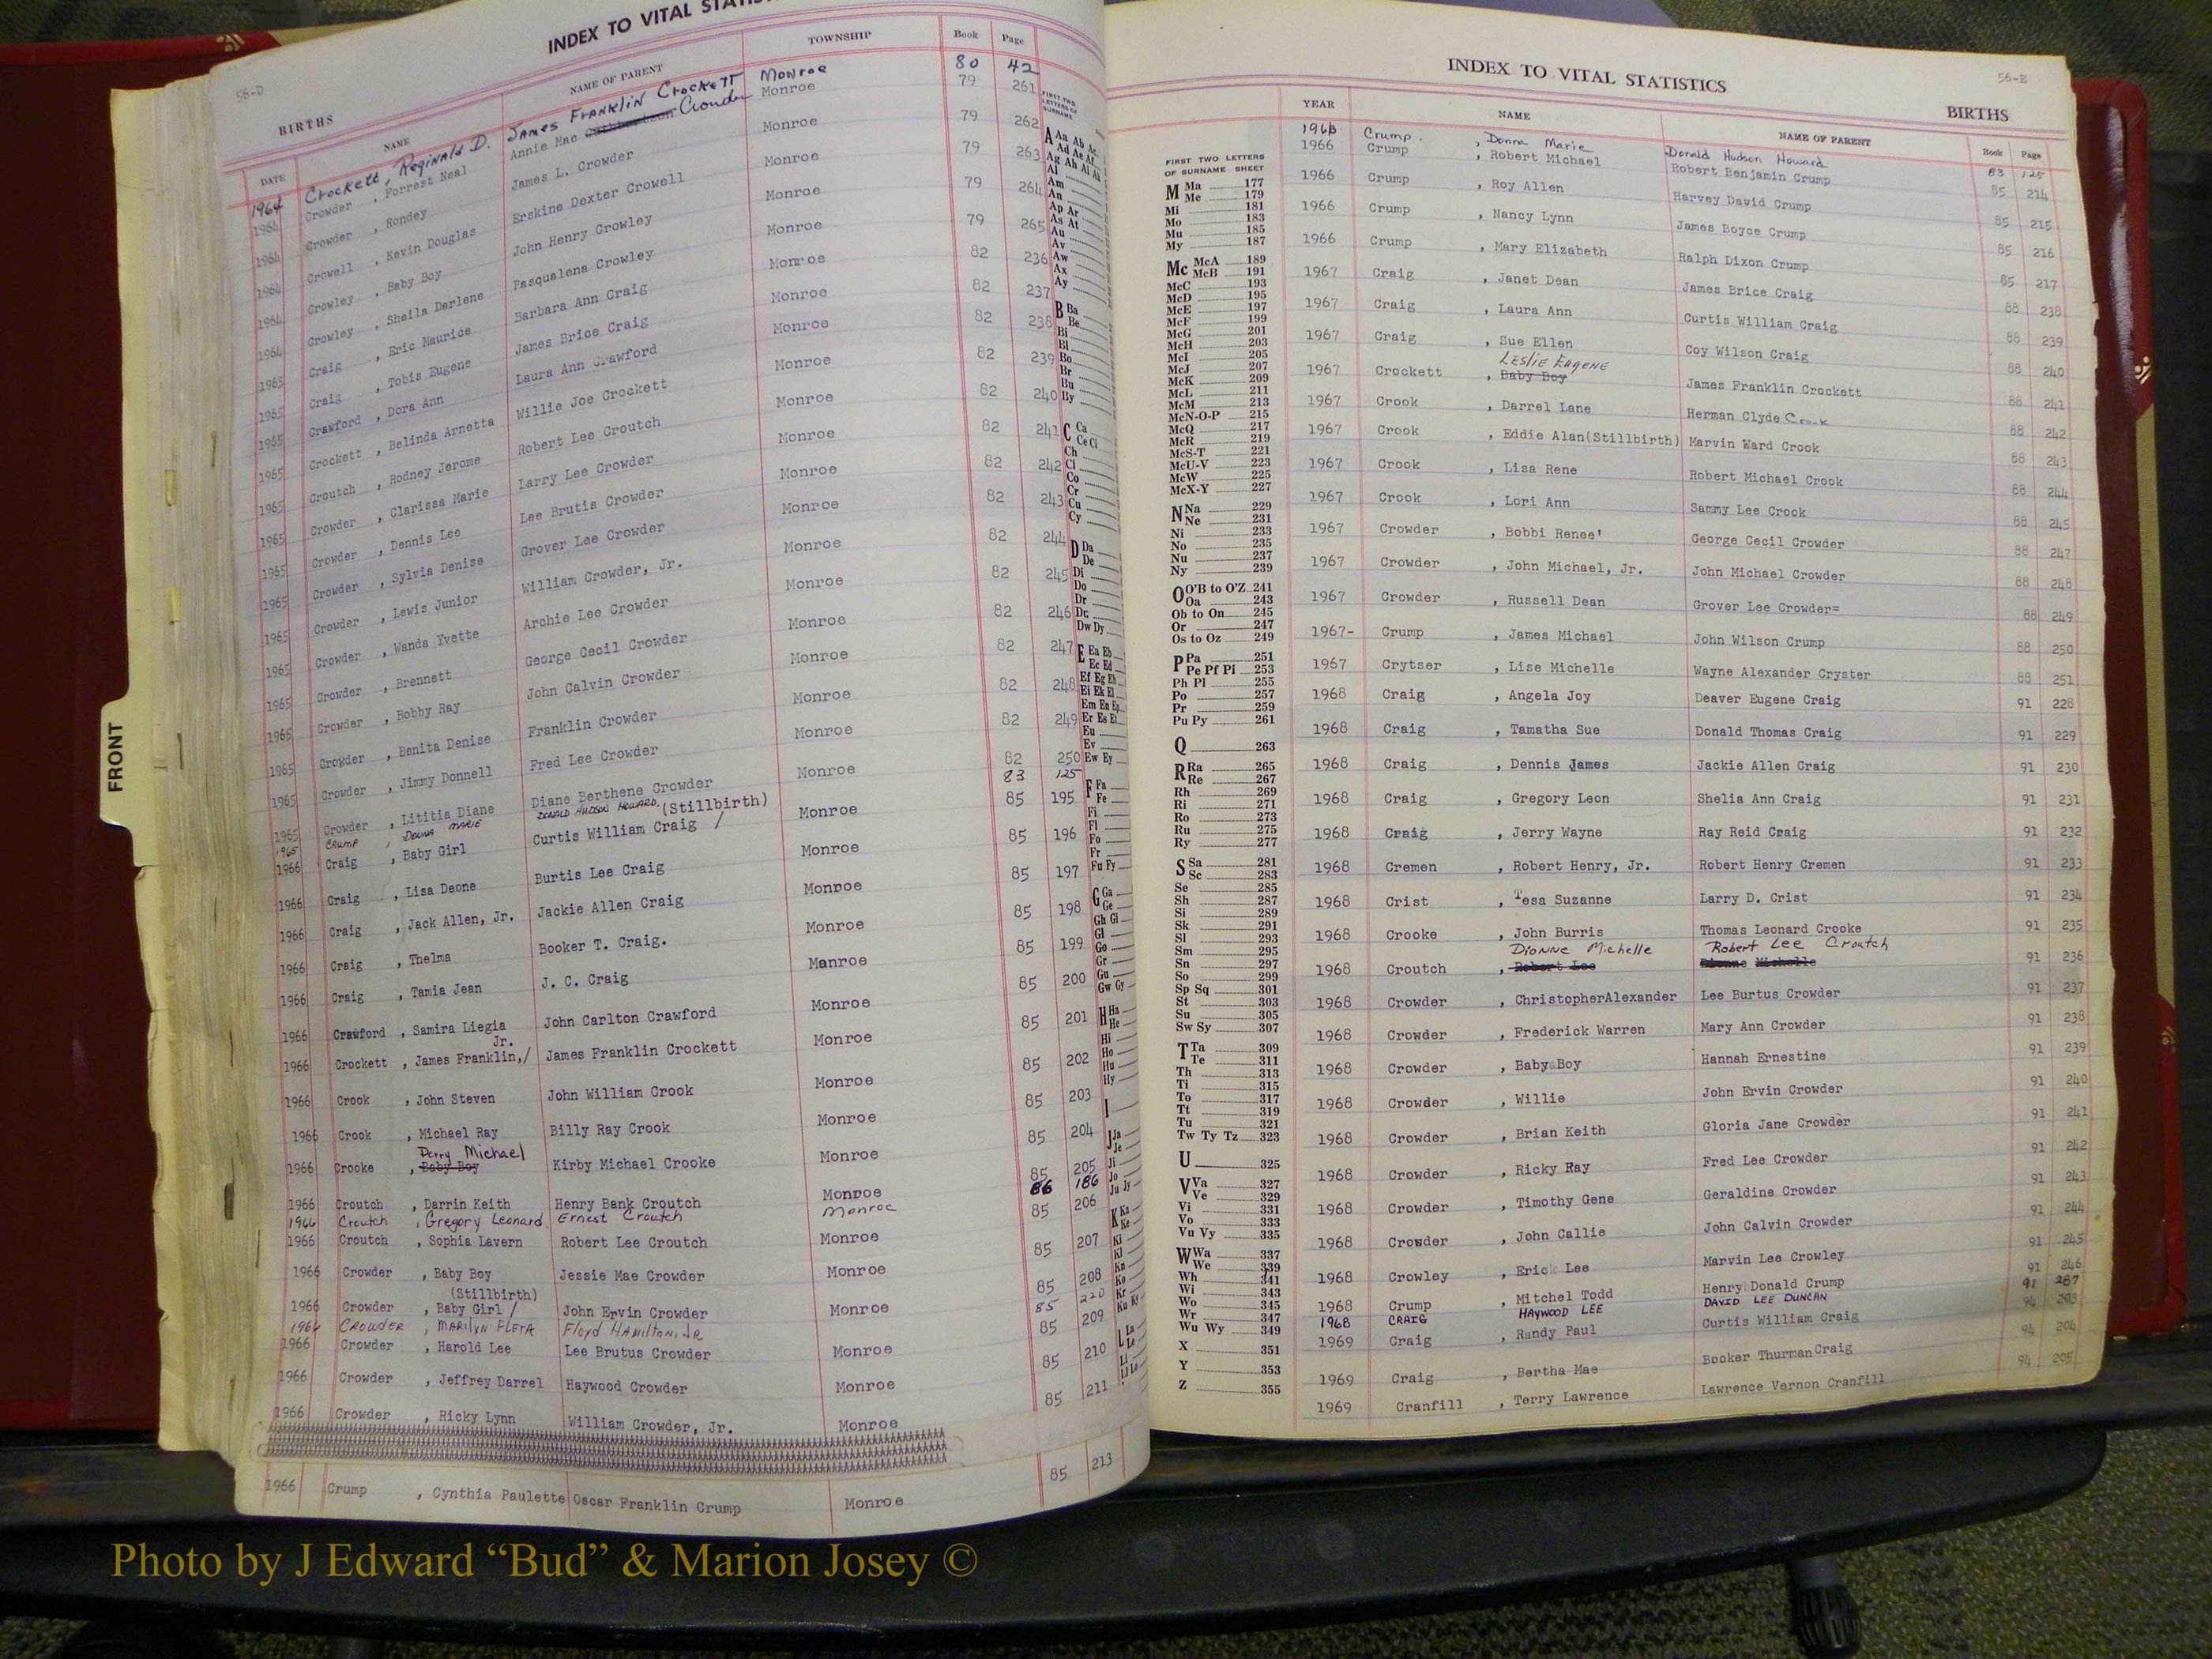 INDEX TO VITAL
56-D
BIRTHS
DATE NAME NAME OF PARENT TOWNSHIP Book Page
1964 Crockett, Reginald D. James Franklin Crockett Monroe 80 42
1964 Crowder , Forrest Neal Annie Mae Crowder Monroe 79 261
1964 Crowder , Rondey James L. Crowder Monroe 79 262
1964 Crowell , Kevin Douglas Erskine Dexter Crowell Monroe 79 263
1964 Crowley , Baby Boy John Henry Crowley Monroe 79 264
1964 Crowley , Sheila Darlene Pasqualena Crowley Monroe 79 265
1965 Craig , Eric Maurice Barbara Ann Craig Monroe 82 236
1965 Craig , Tobis Eugene James Brice Craig Monroe 82 237
1965 Crawford , Dora Ann Laura Ann Crawford Monroe 82 238
1965 Crockett , Belinda Arnetta Willie Joe Crockett Monroe 82 239
1965 Croutch , Rodney Jerome Robert Lee Croutch Monroe 82 240
1965 Crowder , Clarissa Marie Larry Lee Crowder Monroe 82 241
1965 Crowder , Dennis Lee Lee Brutis Crowder Monroe 82 242
1965 Crowder , Sylvia Denise Grover Lee Crowder Monroe 82 243
1965 Crowder , Lewis Junior William Crowder, Jr. Monroe 82 244
1965 Crowder , Wanda Yvette Archie Lee Crowder Monroe 82 245
1965 Crowder , Brennett George Cecil Crowder Monroe 82 246
1965 Crowder , Bobby Ray John Calvin Crowder Monroe 82 247
1965 Crowder , Benita Denise Franklin Crowder Monroe 82 248
1965 Crowder , Jimmy Donnell Fred Lee Crowder Monroe 82 249
1965 Crowder , Lititia Diane Diane Berthene Crowder Monroe 82 250
1965 Crump , Donna Marie Donald Hudson Howard 83 125
1966 Craig , Baby Girl Curtis William Craig / (Stillbirth) Monroe 85 195
1966 Craig , Lisa Deone Burtis Lee Craig Monroe 85 196
1966 Craig , Jack Allen, Jr. Jackie Allen Craig Monroe 85 197
1966 Craig , Thelma Booker T. Craig. Monroe 85 198
1966 Craig , Tamia Jean J. C. Craig Manroe 85 199
1966 Crawford , Samira Liegia John Carlton Crawford Monroe 85 200
1966 Crockett , James Franklin,/ Jr. James Franklin Crockett Monroe 85 201
1966 Crook , John Steven John William Crook Monroe 85 202
1966 Crook , Michael Ray Billy Ray Crook Monroe 85 203
1966 Crooke , Baby Boy Perry Michael Kirby Michael Crooke Monroe 85 204
1966 Croutch , Darrin Keith Henry Bank Croutch Monroe 85 205
1966 Croutch , Gregory Leonard Ernest Croutch Monroe 86 186
1966 Croutch , Sophia Lavern Robert Lee Croutch Monroe 85 206
1966 Crowder , Baby Boy Jessie Mae Crowder Monroe 85 207
1966 Crowder , Baby Girl / (Stillbirth) John Ervin Crowder Monroe 85 208
1966 Crowder , Marilyn Fleta Floyd Hamilton, Jr 85 220
1966 Crowder , Harold Lee Lee Brutus Crowder Monroe 85 209
1966 Crowder , Jeffrey Darrel Haywood Crowder Monroe 85 210
1966 Crowder , Ricky Lynn William Crowder, Jr. Monroe 85 211
1966 Crump , Cynthia Paulette Oscar Franklin Crump Monroe 85 213
FRONT
FIRST TWO LETTERS OF SURNAME
A Aa Ab Ac
Ad Ae Af
Ag Ah Ai Ak
Al
Am
An
Ap Ar
As At
Au
Av
Aw
Ax
Ay
B Ba
Be
Bi
Bl
Bo
Br
Bu
By
C Ca
Ce Ci
Ch
Cl
Co
Cr
Cu
Cy
D Da
De
Di
Do
Dr
Du
Dw Dy
E Ea Eb
Ec Ed
Ef Eg Eh
Ei Ek El
Em En Ep
Er Es Et
Eu
Ev
Ew Ey
F Fa
Fe
Fi
Fl
Fo
Fr
Fu Fy
G Ga
Ge
Gh Gi
Gl
Go
Gr
Gu
Gw Gy
H Ha
He
Hi
Ho
Hu
Hy
I
J Ja
Je
Ji
Jo
Ju Jy
K Ka
Ke
Ki
Kl
Kn
Ko
Kr
Ku Ky
L La
Le
Li
INDEX TO VITAL STATISTICS
56-E
BIRTHS
FIRST TWO LETTERS
OF SURNAME SHEET
M Ma 177
Me 179
Mi 181
Mo 183
Mu 185
My 187
Mc McA 189
McB 191
McC 193
McD 195
McE 197
McF 199
McG 201
McH 203
McI 205
McJ 207
McK 209
McL 211
McM 213
McN-O-P 215
McQ 217
McR 219
McS-T 221
McU-V 223
McW 225
McX-Y 227
N Na 229
Ne 231
Ni 233
No 235
Nu 237
Ny 239
O O'B to O'Z 241
Oa 243
Ob to On 245
Or 247
Os to Oz 249
P Pa 251
Pe Pf Pi 253
Ph Pl 255
Po 257
Pr 259
Pu Py 261
Q 263
R Ra 265
Re 267
Rh 269
Ri 271
Ro 273
Ru 275
Ry 277
S Sa 281
Sc 283
Se 285
Sh 287
Si 289
Sk 291
Sl 293
Sm 295
Sn 297
So 299
Sp Sq 301
St 303
Su 305
Sw Sy 307
T Ta 309
Te 311
Th 313
Ti 315
To 317
Tt 319
Tu 321
Tw Ty Tz 323
U 325
V Va 327
Ve 329
Vi 331
Vo 333
Vu Vy 335
W Wa 337
We 339
Wh 341
Wi 343
Wo 345
Wr 347
Wu Wy 349
X 351
Y 353
Z 355
YEAR NAME NAME OF PARENT Book Page
Crump , Donna Marie Donald Hudson Howard 83 125
1966 Crump , Robert Michael Robert Benjamin Crump 85 214
1966 Crump , Roy Allen Harvey David Crump 85 215
1966 Crump , Nancy Lynn James Boyce Crump 85 216
1966 Crump , Mary Elizabeth Ralph Dixon Crump 85 217
1967 Craig , Janet Dean James Brice Craig 88 238
1967 Craig , Laura Ann Curtis William Craig 88 239
1967 Craig , Sue Ellen Coy Wilson Craig 88 240
1967 Crockett , Baby Boy Leslie Eugene James Franklin Crockett 88 241
1967 Crook , Darrel Lane Herman Clyde Crook 88 242
1967 Crook , Eddie Alan(Stillbirth) Marvin Ward Crook 88 243
1967 Crook , Lisa Rene Robert Michael Crook 88 244
1967 Crook , Lori Ann Sammy Lee Crook 88 245
1967 Crowder , Bobbi Renee' George Cecil Crowder 88 247
1967 Crowder , John Michael, Jr. John Michael Crowder 88 248
1967 Crowder , Russell Dean Grover Lee Crowder= 88 249
1967- Crump , James Michael John Wilson Crump 88 250
1967 Crytser , Lise Michelle Wayne Alexander Cryster 88 251
1968 Craig , Angela Joy Deaver Eugene Craig 91 228
1968 Craig , Tamatha Sue Donald Thomas Craig 91 229
1968 Craig , Dennis James Jackie Allen Craig 91 230
1968 Craig , Gregory Leon Shelia Ann Craig 91 231
1968 Craig , Jerry Wayne Ray Reid Craig 91 232
1968 Cremen , Robert Henry, Jr. Robert Henry Cremen 91 233
1968 Crist , Tesa Suzanne Larry D. Crist 91 234
1968 Crooke , John Burris Thomas Leonard Crooke 91 235
Dionne Michelle Robert Lee Croutch
1968 Croutch , Robert Lee Dionne Michelle 91 236
1968 Crowder , ChristopherAlexander Lee Burtus Crowder 91 237
1968 Crowder , Frederick Warren Mary Ann Crowder 91 238
1968 Crowder , Baby Boy Hannah Ernestine 91 239
1968 Crowder , Willie John Ervin Crowder 91 240
1968 Crowder , Brian Keith Gloria Jane Crowder 91 241
1968 Crowder , Ricky Ray Fred Lee Crowder 91 242
1968 Crowder , Timothy Gene Geraldine Crowder 91 243
1968 Crowder , John Callie John Calvin Crowder 91 244
1968 Crowley , Eric Lee Marvin Lee Crowley 91 245
1968 Crump , Mitchel Todd Henry Donald Crump 91 246
1968 CRAIG HAYWOOD LEE DAVID LEE DUNCAN 91 287
1969 Craig , Randy Paul Curtis William Craig 94 203
1969 Craig , Bertha Mae Booker Thurman Craig 94 204
1969 Cranfill , Terry Lawrence Lawrence Vernon Cranfill 94 205
Photo by J Edward “Bud” & Marion Josey ©